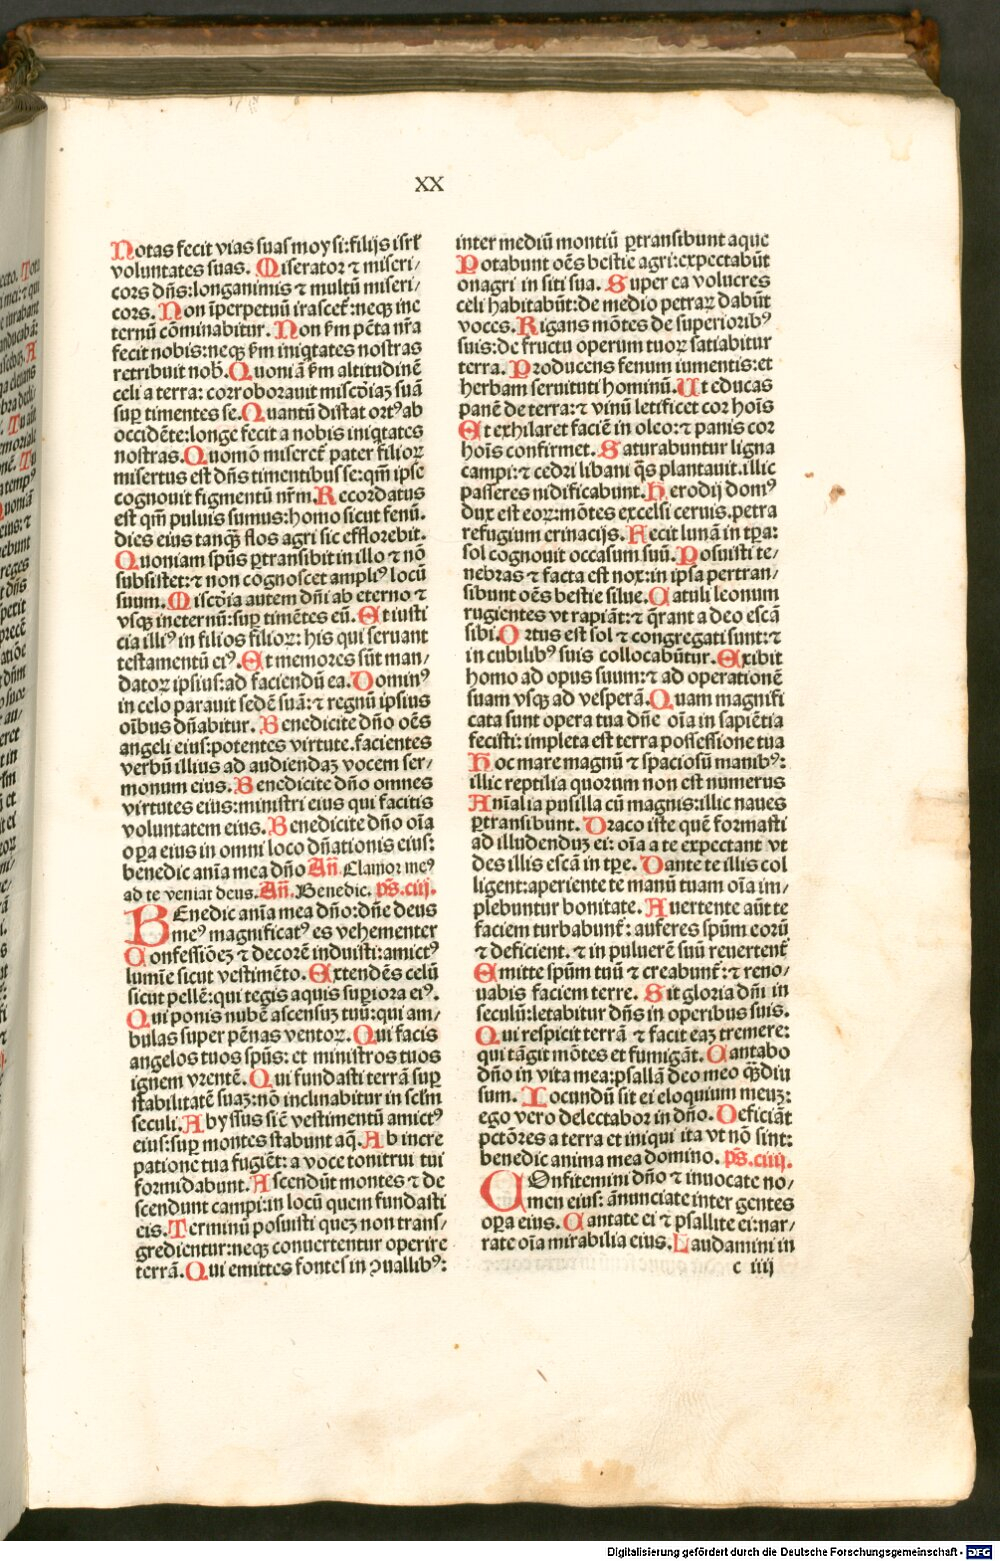 XX
Notas fecit vias suas moysi:filijs isrł
voluntates suas. Miserator ⁊ miseri/
cors dñs:longanimis ⁊ multũ miseri/
cors. Non ĩperpetuũ irascet᷑:neqꝫ ine
ternũ cõminabitur. Non ẜm pc̃ta nr̃a
fecit nobis:neqꝫ ẜm iniq̃tates nostras
retribuit nob̃. Quoniã ẜm altitudinẽ
celi a terra: corroborauit misc̃diaꝫ suã
suꝑ timentes se. Quantũ distat ortꝰ ab
occidẽte:longe fecit a nobis iniq̃tates
nostras. Quomõ miseret᷑ pater filioꝝ
misertus est dñs timentibus se:qm̃ ipse
cognouit figmentũ nr̃m. Recordatus
est qm̃ puluis sumus:homo sicut fenũ.
dies eius tanqꝫ flos agri sic efflorebit.
Quoniam spũs ꝑtransibit in illo ⁊ nõ
subsistet:⁊ non cognoscet ampliꝰ locũ
suum. Misc̃dia autem dñi ab eterno ⁊
vsqꝫ ineternũ:suꝑ timẽtes eũ. Et iusti
cia illiꝰ in filios filioꝝ: his qui seruant
testamentũ eiꝰ. Et memores sũt man/
datoꝝ ipsius:ad faciendũ ea. Dominꝰ
in celo parauit sedẽ suã:⁊ regnũ ipsius
oĩbus dñabitur. Benedicite dño oẽs
angeli eius:potentes virtute.facientes
verbũ illius ad audiendaꝫ vocem ser/
monum eius. Benedicite dño omnes
virtutes eius:ministri eius qui facitis
voluntatem eius. Benedicite dño oĩa
oꝑa eius in omni loco dñationis eius:
benedic anĩa mea dño Añ. Clamor meꝰ
ad te veniat deus. Añ. Benedic. ps̃. ciij.
BEnedic anĩa mea dño:dñe deus
meꝰ magnificatꝰ es vehementer
Confessiõeꝫ ⁊ decorẽ induisti:amictꝰ
lumĩe sicut vestimẽto. Extendẽs celũ
sicut pellẽ:qui tegis aquis suꝑiora eiꝰ.
Qui ponis nubẽ ascensuꝫ tuũ:qui am/
bulas super pẽnas ventoꝝ. Qui facis
angelos tuos spũs: et ministros tuos
ignem vrentẽ. Qui fundasti terrã suꝑ
stabilitatẽ suaꝫ:nõ inclinabitur in sclm̃
seculi. Abyssus sic̃ vestimentũ amictꝰ
eius:suꝑ montes stabunt aq̃. Ab incre
patione tua fugiẽt: a voce tonitrui tui
formidabunt. Ascendũt montes ⁊ de
scendunt campi:in locũ quem fundasti
eis. Terminũ posuisti queꝫ non trans/
gredientur:neqꝫ conuertentur operire
terrã. Qui emittes fontes in ꝯuallibꝰ:
inter mediũ montiũ ꝑtransibunt aque
Potabunt oẽs bestie agri:expectabũt
onagri in siti sua. Super ea volucres
celi habitabũt:de medio petraꝝ dabũt
voces. Rigans mõtes de superioribꝰ
suis:de fructu operum tuoꝝ satiabitur
terra. Producens fenum iumentis:et
herbam seruituti hominũ. Ut educas
panẽ de terra:⁊ vinũ letificet cor hoĩs
Et exhilaret faciẽ in oleo:⁊ panis cor
hoĩs confirmet. Saturabuntur ligna
campi:⁊ cedri libani q̃s plantauit.illic
passeres nidificabunt. Herodij domꝰ
dux est eoꝝ:mõtes excelsi ceruis.petra
refugium erinacijs. Fecit lunã in tꝑa:
sol cognouit occasum suũ. Posuisti te/
nebras ⁊ facta est nox:in ipsa pertran/
sibunt oẽs bestie silue. Catuli leonum
rugientes vt rapiãt:⁊ q̃rant a deo escã
sibi. Ortus est sol ⁊ congregati sunt:⁊
in cubilibꝰ suis collocabũtur. Exibit
homo ad opus suum:⁊ ad operationẽ
suam vsqꝫ ad vesperã. Quam magnifi
cata sunt opera tua dñe oĩa in sapiẽtia
fecisti: impleta est terra possessione tua
Hoc mare magnũ ⁊ spaciosũ manibꝰ:
illic reptilia quorum non est numerus
Anĩalia pusilla cũ magnis:illic naues
ꝑtransibunt. Draco iste quẽ formasti
ad illudenduꝫ ei: oĩa a te expectant vt
des illis escã in tꝑe. Dante te illis col
ligent:aperiente te manũ tuam oĩa im/
plebuntur bonitate. Auertente aũt te
faciem turbabunt᷑: auferes spũm eorũ
⁊ deficient. ⁊ in puluerẽ suũ reuertent᷑
Emitte spũm tuũ ⁊ creabunt᷑:⁊ reno/
uabis faciem terre. Sit gloria dñi in
seculũ:letabitur dñs in operibus suis.
Qui respicit terrã ⁊ facit eaꝫ tremere:
qui tãgit mõtes et fumigãt. Cantabo
dño in vita mea:psallã deo meo qꝫdiu
sum. Iocundũ sit ei eloquium meuꝫ:
ego vero delectabor in dño. Deficiãt
pctõres a terra et iniqui ita vt nõ sint:
benedic anima mea domino. ps̃. ciiij.
COnfitemini dño ⁊ inuocate no/
men eius: ãnunciate inter gentes
oꝑa eius. Cantate ei ⁊ psallite ei:nar/
rate oĩa mirabilia eius. Laudamini in
c iiij
Digitalisierung gefördert durch die Deutsche Forschungsgemeinschaft - DFG